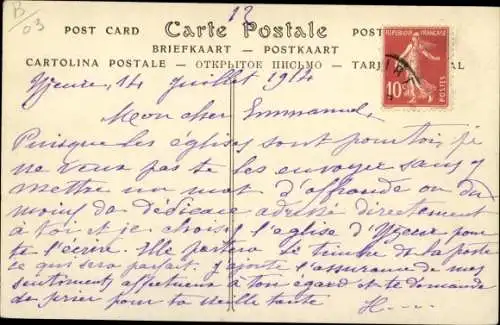 B
03
12
POST CARD Carte Postale POST
BRIEFKAART — POSTKAART
CARTOLINA POSTALE — ОТКРЫТОЕ ПИСЬМО — TARJ AL
REPUBLIQUE FRANÇAISE
10c
POSTES
Yzeure, 14 Juillet 1914
Mon cher Emmanuel,
Puisque les églises sont pour toi, je
ne veux pas te les envoyer sans y
mettre un mot d'affrande ou du
moins da dédicace adressé directement
à toi et je choisi l'église d'Yzeure pour
te l'écrire. Elle portera le timbre de la poste
ce qui sera parfait. J'ajoute l'assurance de mes
sentiments affectueux à ton égard et te demande
de prier pour ta vieille tante H----